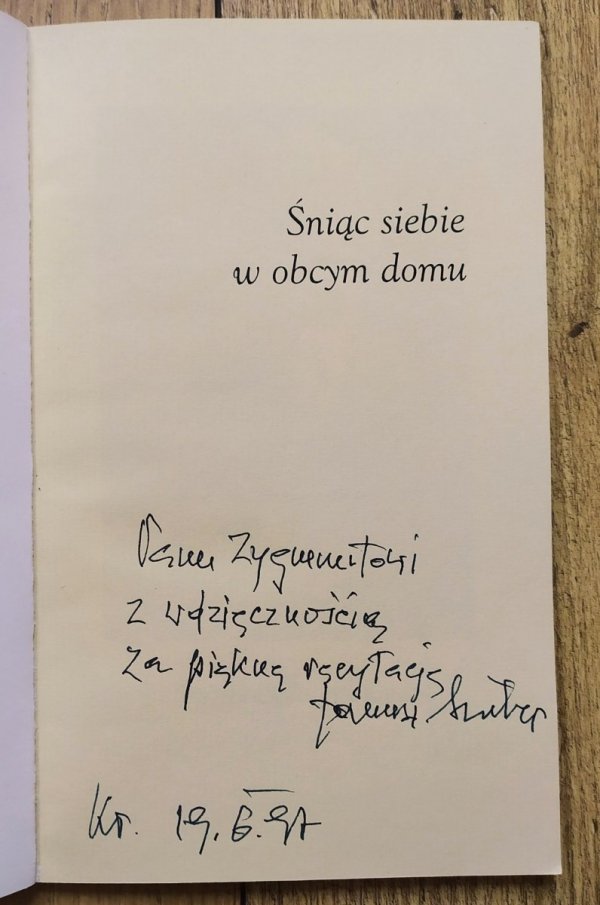 Śniąc siebie
w obcym domu
Panu Zygmuntowi
z wdzięcznością
za piękną recytację
Janusz Szuber
Kr. 19.6.97